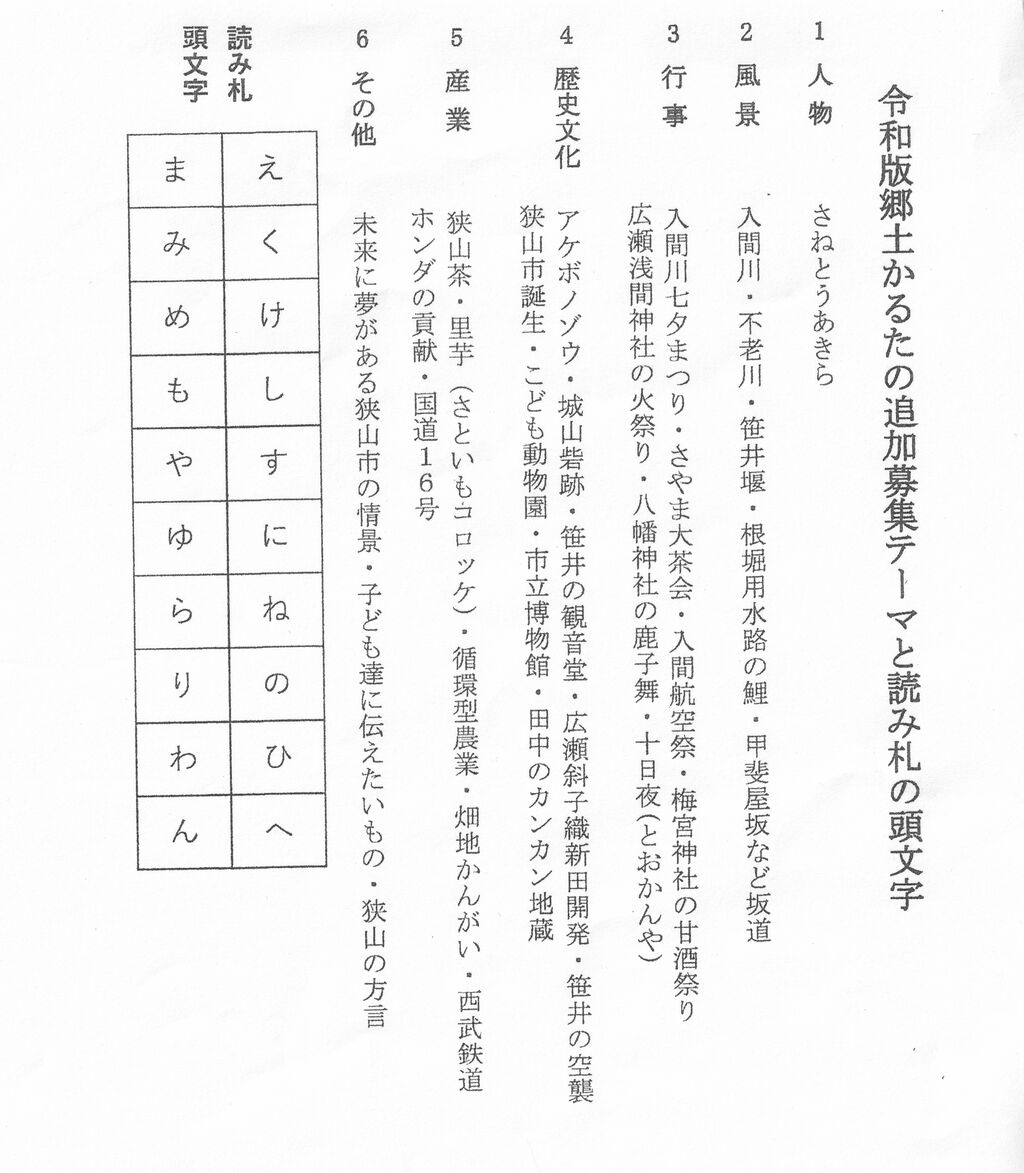 令和版郷土かるたの追加募集テーマと読み札の頭文字
1 人物 さねとうあきら
2 風景 入間川・不老川・笹井堰・根堀用水路の鯉・甲斐屋坂など坂道
3 行事 入間川七夕まつり・さやま大茶会・入間航空祭・梅宮神社の甘酒祭り
広瀬浅間神社の火祭り・八幡神社の鹿子舞・十日夜(とおかんや)
4 歴史文化 アケボノゾウ・城山砦跡・笹井の観音堂・広瀬斜子織新田開発・笹井の空襲
狭山市誕生・こども動物園・市立博物館・田中のカンカン地蔵
5 産業 狭山茶・里芋(さといもコロッケ)・循環型農業・畑地かんがい・西武鉄道
ホンダの貢献・国道16号
6 その他 未来に夢がある狭山市の情景・子ども達に伝えたいもの・狭山の方言
読み札
頭文字
え く け し す に ね の ひ へ
ま み め も や ゆ ら り わ ん